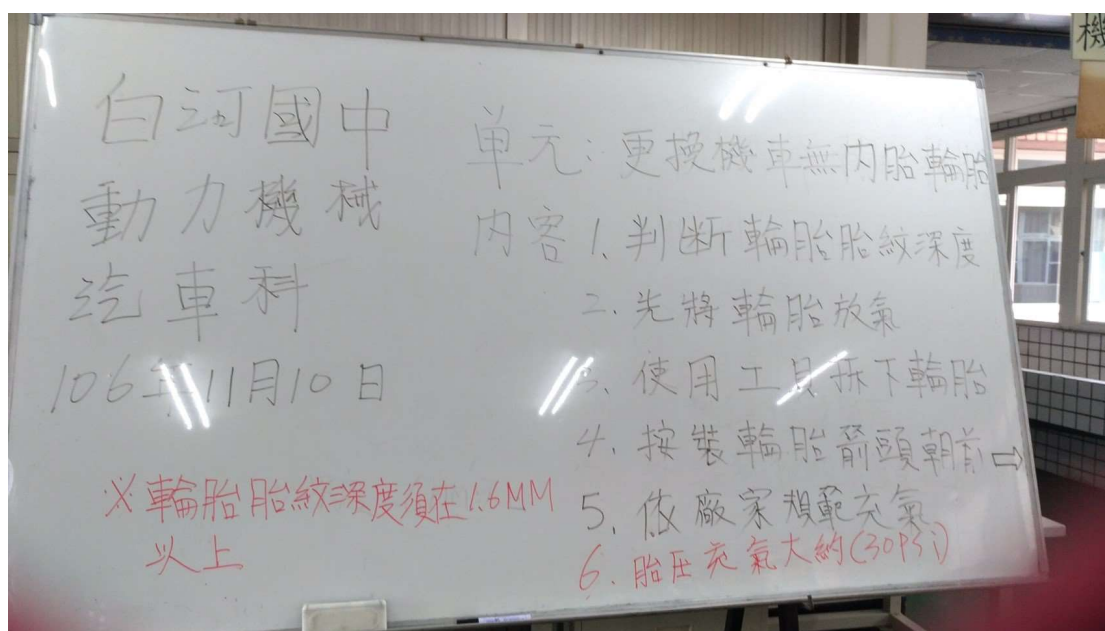 白河國中
動力機械
汽車科
106年11月10日
※輪胎胎紋深度須在1.6MM
以上
单元:更換機車無內胎輪胎
內容1.判断輪胎胎紋深度
2.先將輪胎放氣
3.使用工具拆下輪胎
4.按裝輪胎箭頭朝前⇨
5.依廠家規範充氣
6.胎压充氣大約(30PSi)
機